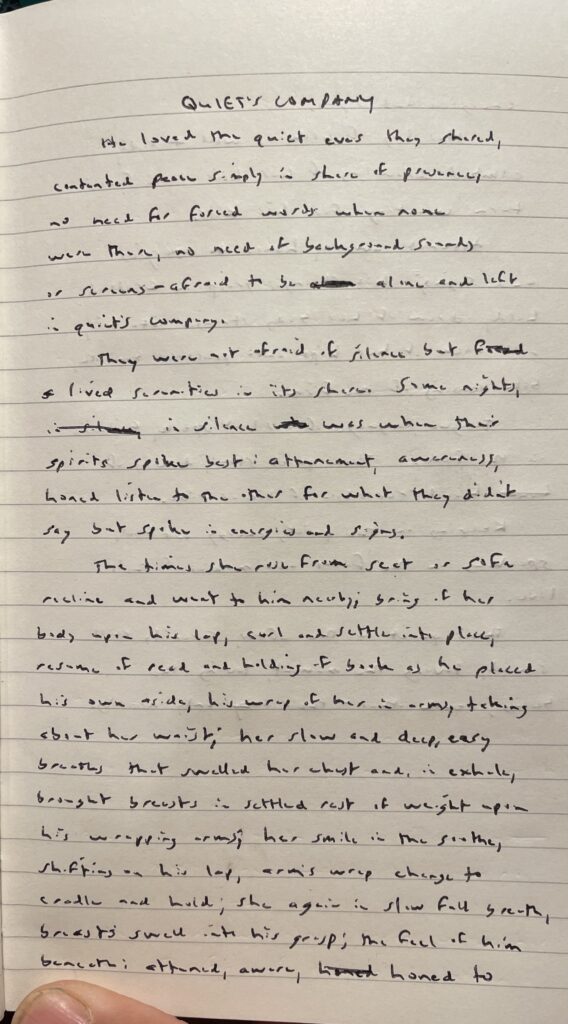 QUIET'S COMPANY
He loved the quiet eves they shared,
contented peace simply in share of presence,
no need for forced words when none
were there, no need of background sounds
or screens - afraid to be alone and left
in quiet's company.
They were not afraid of silence but
lived serenities in its share. Some nights,
in silence was when their
spirits spoke best: attunement, awareness,
honed listen to the other for what they didn't
say but spoke in energies and signs.
The times she rose from seat or sofa
recline and went to him nearby; bring of her
body upon his lap, curl and settle into place,
resume of read and holding of book as he placed
his own aside, his wrap of her in arms, taking
about her waist; her slow and deep, easy
breaths that swelled her chest and, in exhale,
brought breasts in settled rest of weight upon
his wrapping arms; her smile in the soothe,
shifting on his lap, arms wrap change to
cradle and hold; she again in slow full breath,
breasts swell into his grasp; the feel of him
beneath: attuned, aware, honed to